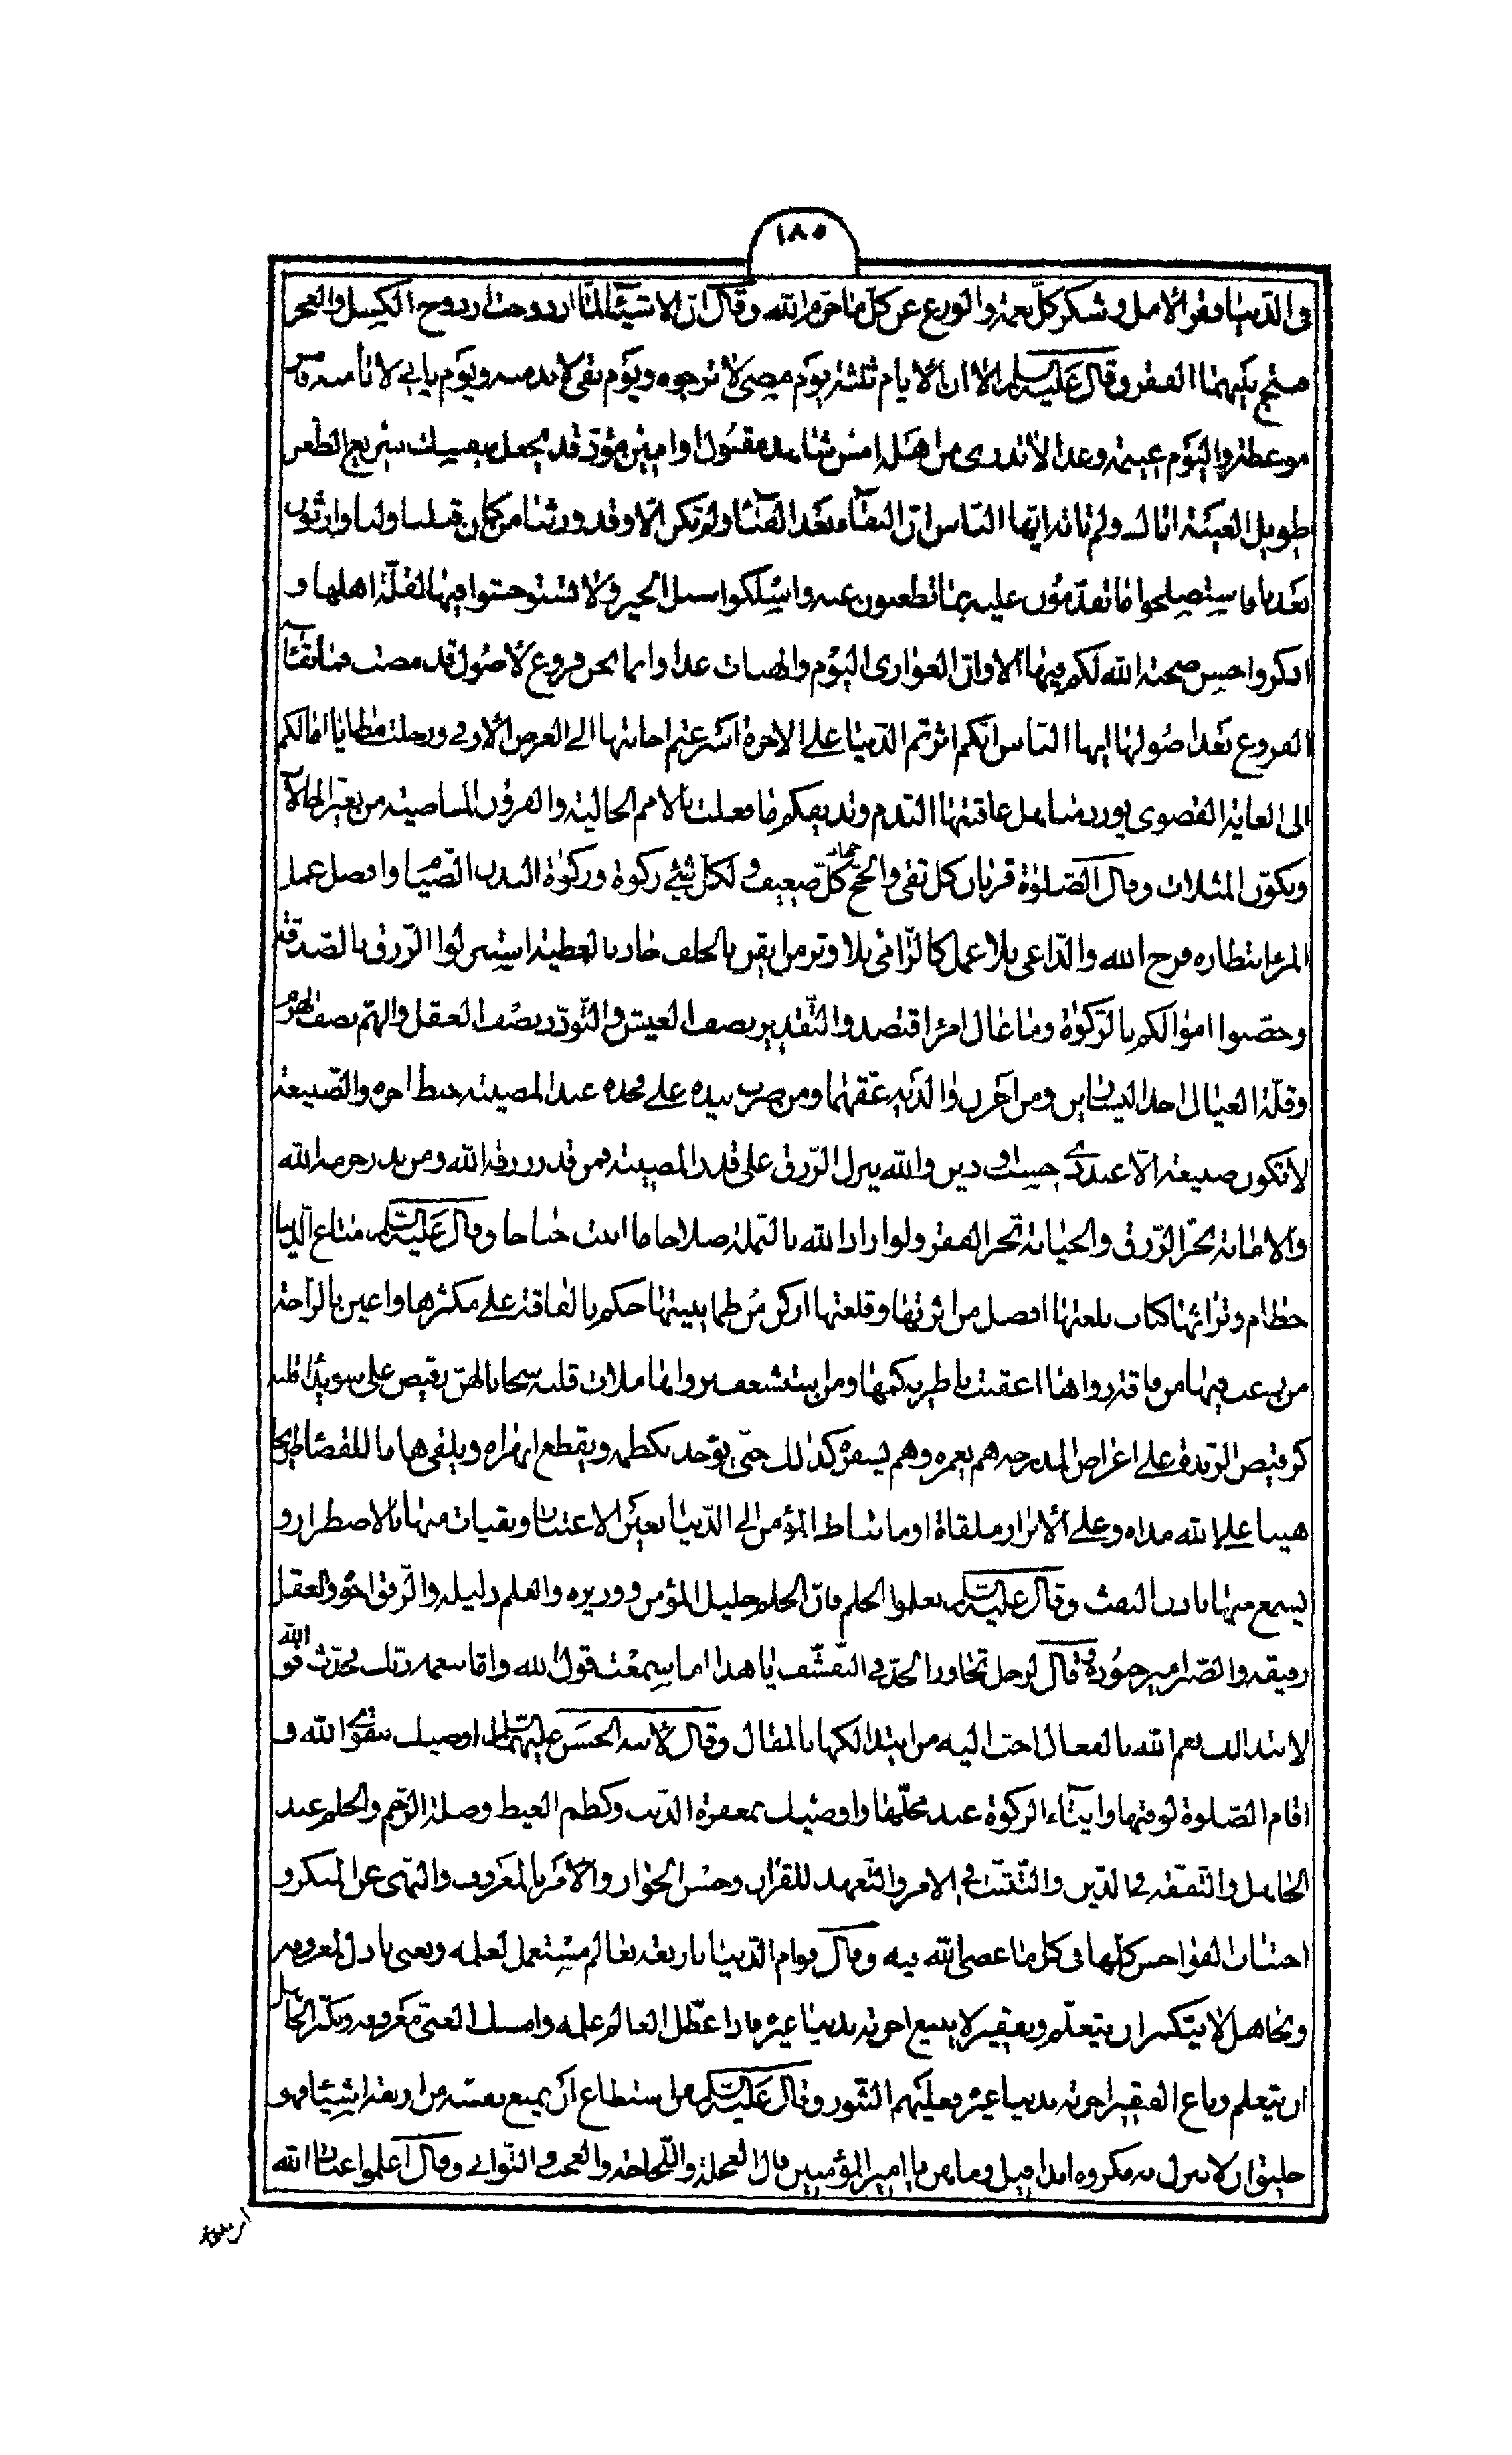 ١٨٥
في الدنيا وقصر الأمل وشكر كل نعمة والورع عن كل ما حرم الله وقال ان الاشياء لما ازدوجت ازدوج الكسل والعجز
فنتج بينهما الفقر وقال عليه السلم الا ان الايام ثلثة يوم مضى لا ترجوه ويوم بقي لابد منه ويوم ياتي لا تأمنه فامس
موعظة واليوم غنيمة وغدا لا تدرى من اهله امس شاهد مقبول وامين مؤد قد يجعل بنفسك سريع الظعن
طويل الغيبة اتاك ولم تاته ايها الناس ان البقاء بعد الفناء ولم تكن الا وقد ورثنا من كان قبلنا ولنا وارثون
بعدنا فاستصلحوا ما تقدمون عليه بما تظعنون عنه واسلكوا سبل الخير ولا تستوحشوا فيها لقلة اهلها و
اذكروا حسن صحبة الله لكم فيها الا وان العوارى اليوم والهبات غدا وانما نحن فروع لاصول قد مضت فما بقاء
الفروع بعد اصولها ايها الناس انكم ان اثرتم الدنيا على الاخرة اسرعتم اجابتها الى العرض الادنى ورحلت مطايا امالكم
الى الغاية القصوى يورد مناهل عاقبتها الندم وتذيقكم ما فعلت بالامم الخالية والقرون الماضية من تغير الحالات
وتكون المثلات وقال الصلوة قربان كل تقى والحج جهاد كل ضعيف ولكل شئ زكوة وزكوة البدن الصيام وافضل عمل
المرء انتظاره فرج الله والداعى بلا عمل كالرامى بلا وتر من ايقن بالخلف جاد بالعطية استنزلوا الرزق بالصدقة
وحصنوا اموالكم بالزكوة وما عال امرء اقتصد والتقدير نصف العيش والتودد نصف العقل والهم نصف الهرم
وقلة العيال احد اليسارين ومن احزن والديه عقهما ومن ضرب بيده على فخذه عند المصيبة حبط اجره والصنيعة
لا تكون صنيعة الا عند ذى حسب او دين والله ينزل الرزق على قدر المصيبة فمن قدر رزقه الله ومن بذر حرمه الله
والامانة تجر الرزق والخيانة تجر الفقر ولو اراد الله بالنملة صلاحا ما انبت جناحا وقال عليه السلم متاع الدنيا
حطام وتراثها كباب بلغتها افضل من اثرتها وقلعتها اركن من طمانينتها حكم بالفاقة على مكثرها واعين بالراحة
من رغب فيها من فاقته رواها اعقبت ناظريه كمها ومن استشعف بروائها ملات قلبه سحابا لهن رقيص على سويداء قلبه
كرقيص الزبدة على اعراض المدرجه هم يعمره وهم يسفره كذلك حتى يؤخذ بكظمه ويقطع ابهراه ويلقى هاما للقضا طريحا
هينا على الله مداه وعلى الابرار ملقاه اوما نباط المؤمن الى الدنيا بعين الاعتبار ويقتات منها بالاضطرار و
يسمع منها باذن البغث وقال عليه السلم تعلموا الحلم فان الحلم خليل المؤمن ووزيره والعلم دليله والرفق اخوه والعقل
رفيقه والصبر امير جنوده وقال لرجل تجاوز الحد في التقشف يا هذا اما سمعت قول الله واما بنعمة ربك فحدث فو الله
لابتذالك نعم الله بالفعال احب اليه من ابتذالكها بالمقال وقال لابنه الحسن عليهما السلم اوصيك بتقوى الله و
اقام الصلوة لوقتها وايتاء الزكوة عند محلها واوصيك بمغفرة الذنب وكظم الغيظ وصلة الرحم والحلم عند
الجاهل والتفقه فى الدين والتثبت في الامر والتعهد للقران وحسن الجوار والامر بالمعروف والنهى عن المنكر و
اجتناب الفواحش كلها فى كل ما عصى الله فيه وقال قوام الدنيا باربعة بعالم مستعمل لعلمه وبغنى باذل لمعروفه
وبجاهل لا يتكبر ان يتعلم وبفقير لا يبيع اخرته بدنيا غيره فاذا عطل العالم علمه وامسك الغنى معروفه وتكبر الجاهل
ان يتعلم وباع الفقير اخرته بدنيا غيره فعليهم الثبور وقال عليه السلم من استطاع ان يمنع نفسه من اربعة اشياء فهو
خليق ان لا ينزل به مكروه ابدا قيل وما هن يا امير المؤمنين قال العجلة واللجاجة والعجب والتوانى وقال اعلموا عباد الله